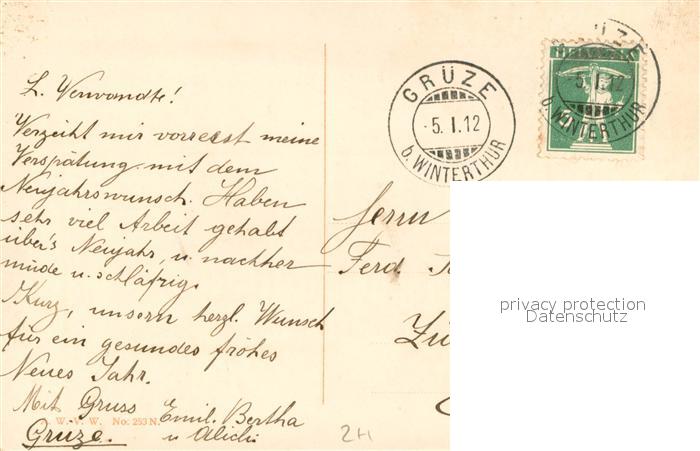 L. Verwandte!
Verzeiht mir vorerst meine
Verspätung mit dem
Neujahrswunsch. Haben
sehr viel Arbeit gehabt
über's Neujahr, u. nachher
müde u. schläfrig.
Kurz, unsern herzl. Wunsch
für ein gesundes frohes
Neues Jahr.
Mit Gruss Emil. Bertha
W. V. W. No: 253 N.
Grüze. u
GRÜZE
-5.I.12
b. WINTERTHUR
GRÜZE
5.I.12
b. WINTERTHUR
Herrn
Ferd.
privacy protection
Datenschutz
2H